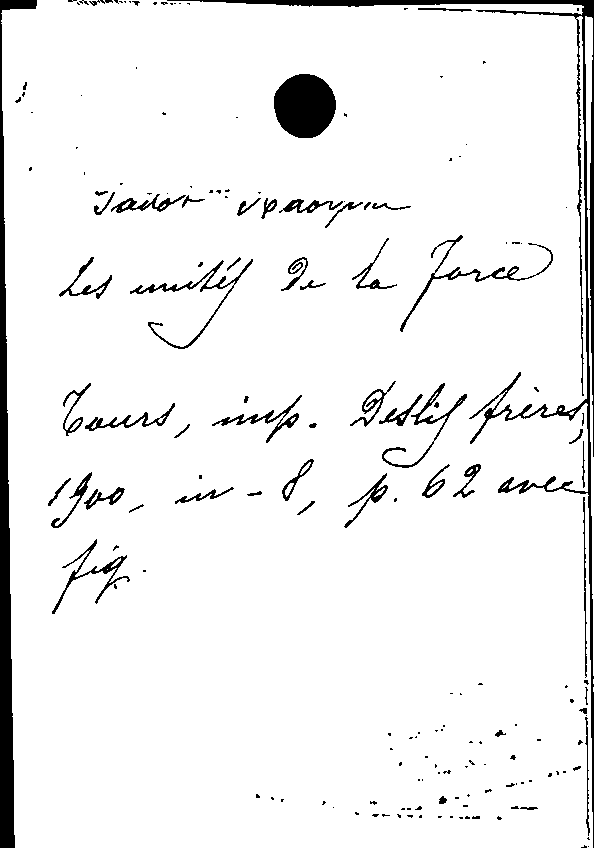 Les unités de la Force
Tours, imp. Deslis frères,
1900, in-8, p. 62 avec
fig.